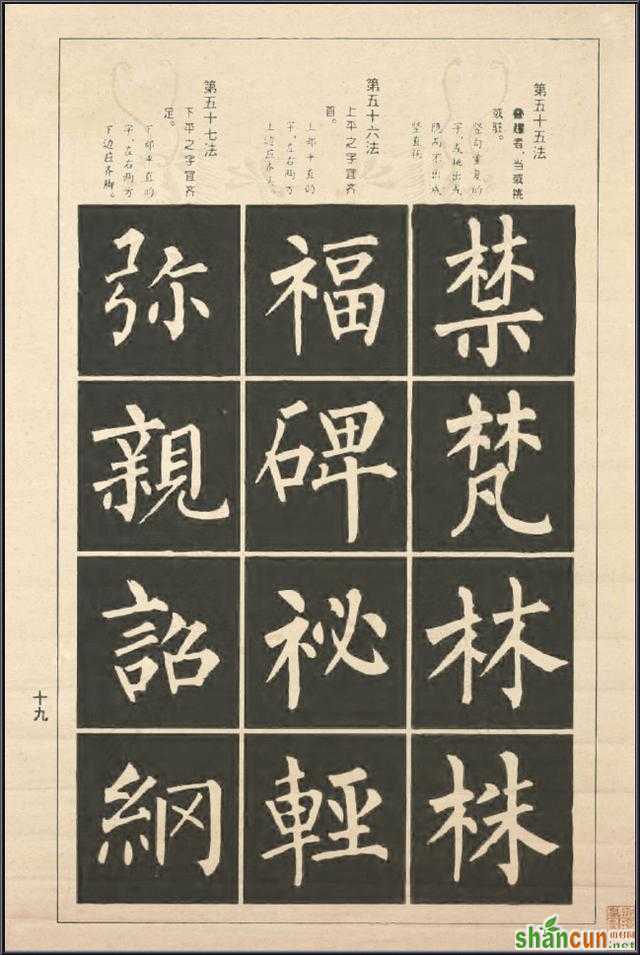 第五十五法
叠趯者，当或挑
或驻。
竖钩重复的
字，或挑出或
隐而不出或
竖直
第五十六法
上平之字宜齐
首。
上部平直的
字，左右两方
上边应齐头。
第五十七法
下平之字宜齐
足。
下部平直的
字，左右两方
下边应齐脚。
禁梵林株
福碑祕輕
弥親詔綱
十九
shancun
山村网
.net